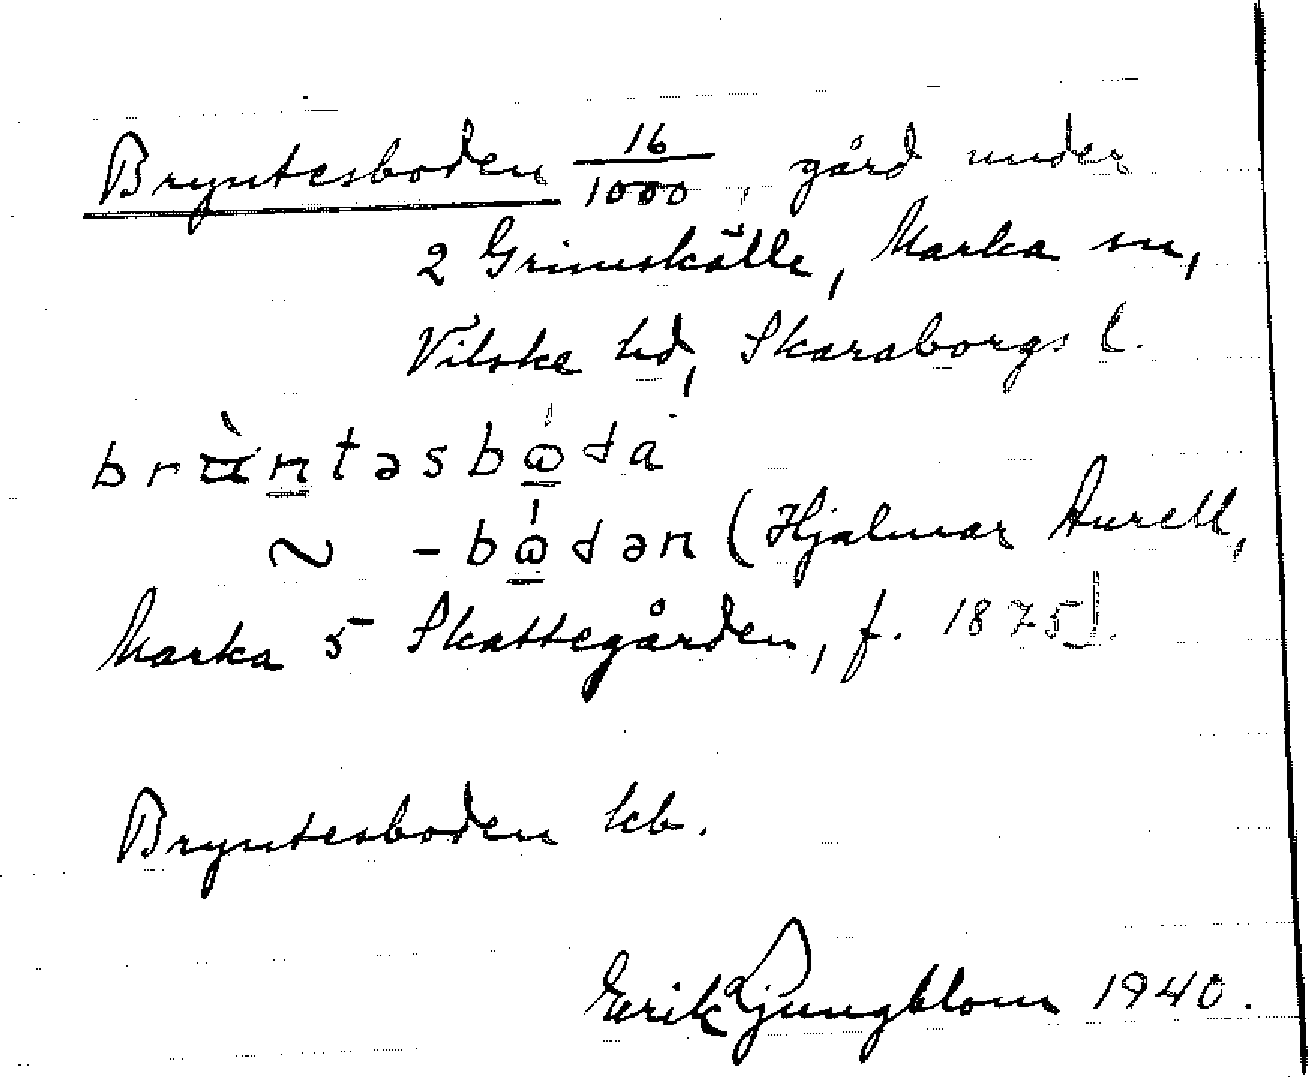 Bryntesboden 16/1000, gård under
2 Grimskälle, Marka sn,
Vilske hd, Skaraborgs l.
~ -bώ̲dən (Hjalmar Aurell,
Marka 5 Skattegården, f. 1875).
Bryntesboden kb.
Erik Ljungblom 1940.